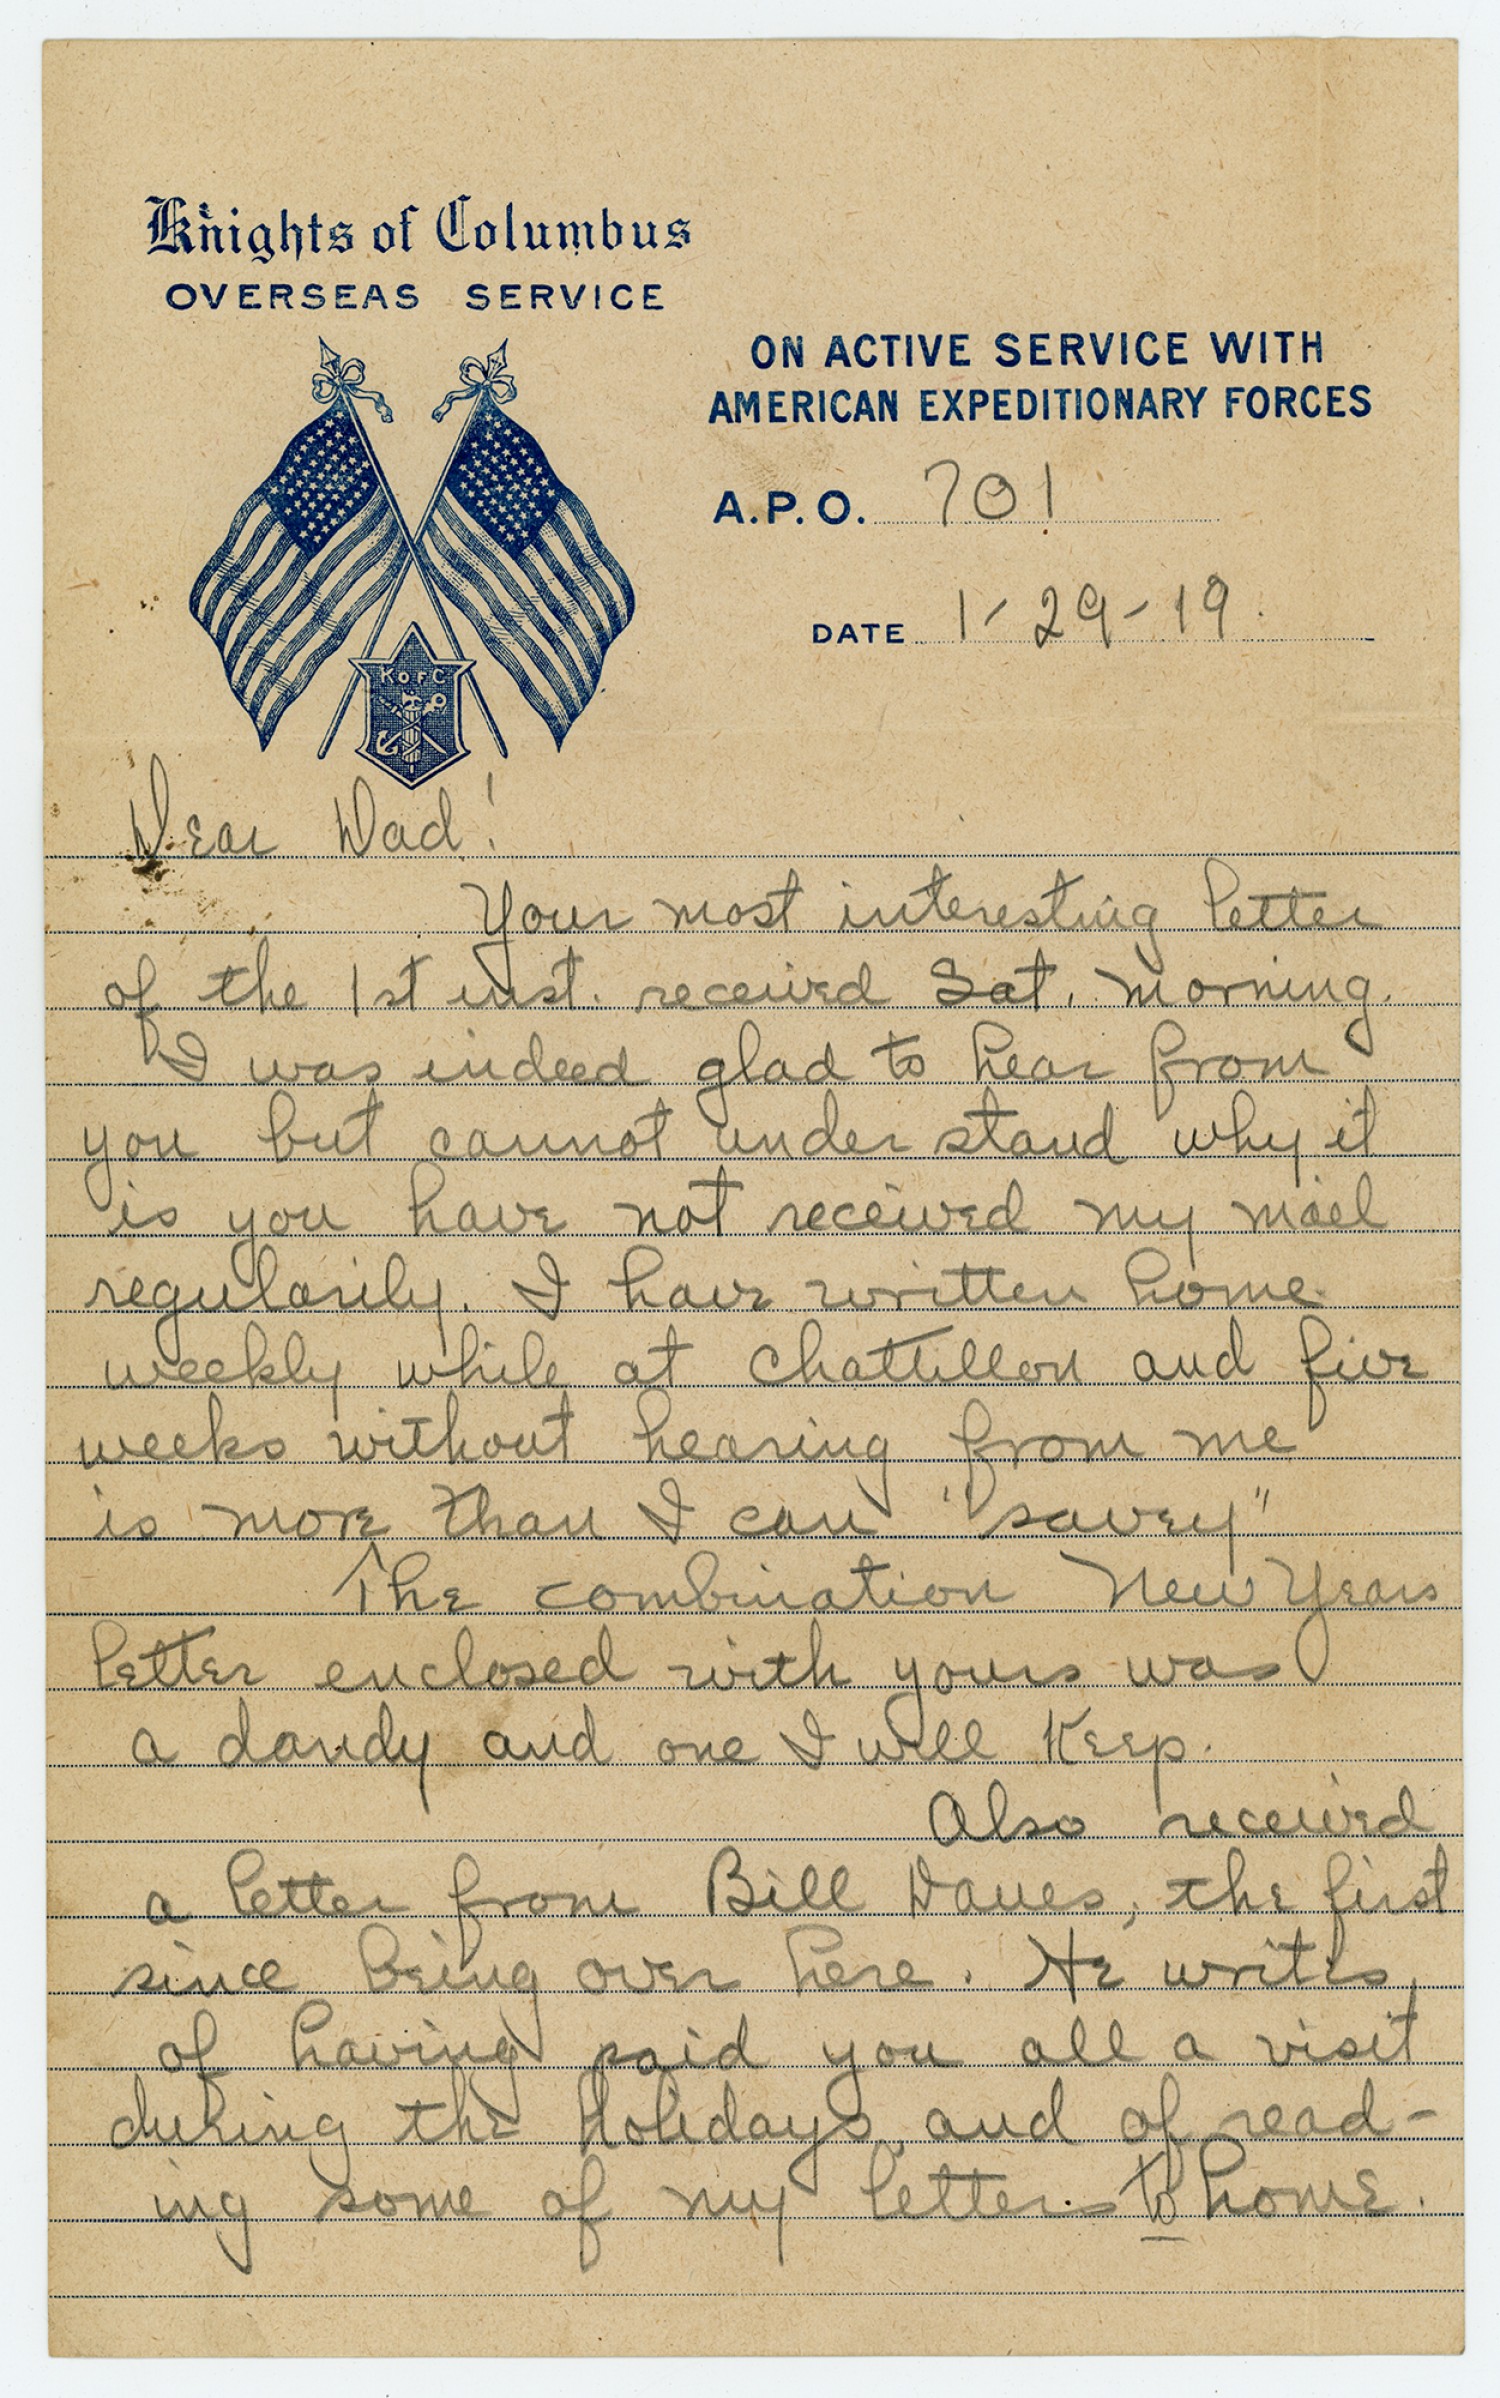 Knights of Columbus
OVERSEAS SERVICE
ON ACTIVE SERVICE WITH
AMERICAN EXPEDITIONARY FORCES
A.P.O. 701
DATE 1-29-19
K OF C
Dear Dad!
Your most interesting letter
of the 1st inst. received Sat. morning.
I was indeed glad to hear from
you but cannot understand why it
is you have not received my mail
regularily. I have written home
weekly while at Chattillon and five
weeks without hearing from me
is more than I can "savey"
The combination New Years
letter enclosed with yours was
a dandy and one I will keep.
Also received
a letter from Bill Daues, the first
since being over here. He writes
of having paid you all a visit
during the Holidays, and of read-
ing some of my letters to home.